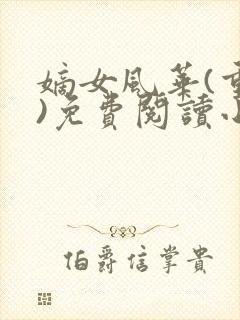 嫡女風華(重
)免費閱讀小
伯爵信掌貴